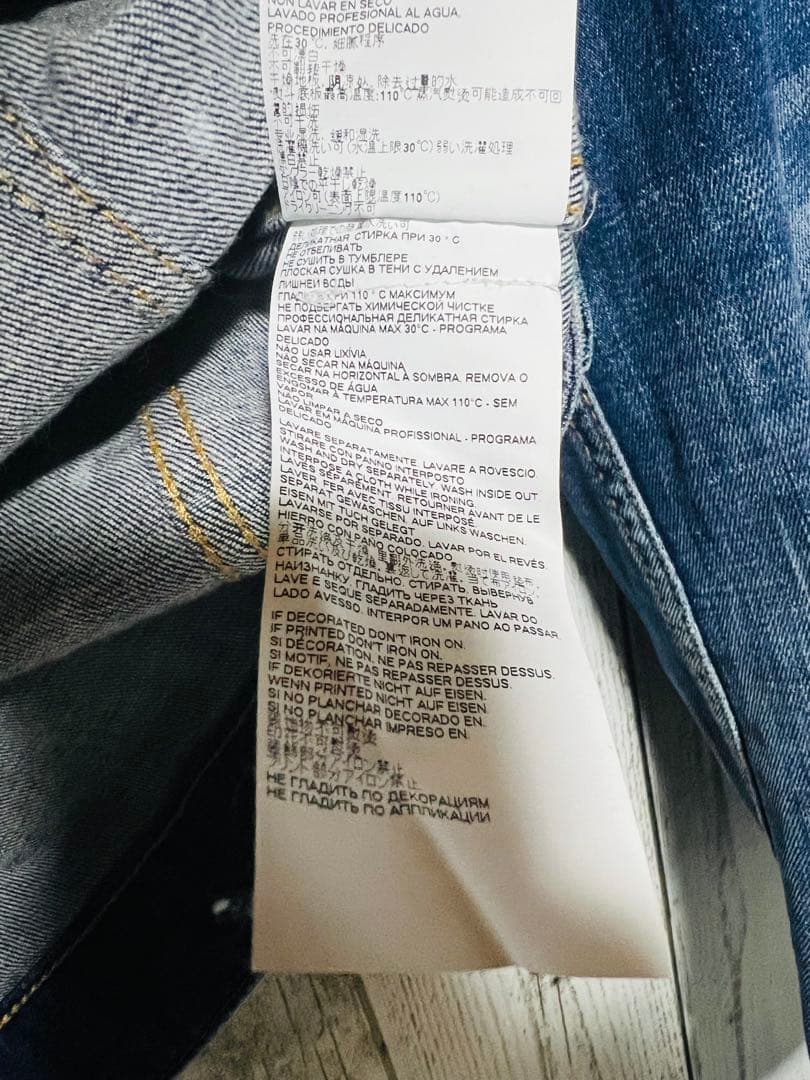 NON LAVAR EN SECO
LAVADO PROFESIONAL AL AGUA,
PROCEDIMIENTO DELICADO
洗在30℃, 细腻程序
不可漂白
不可翻转干燥
干燥地板, 阴凉处, 除去过量的水
熨斗底板最高温度:110℃蒸汽熨烫可能造成不可回
的损伤
不可干洗
专业湿洗, 缓和湿洗
洗濯機洗い可(水温上限30℃)弱い洗濯処理
漂白禁止
タンブラー乾燥禁止
日陰での平干し乾燥
アイロン可(表面上限温度110℃)
ドライクリーニング不可
ДЕЛИКАТНАЯ СТИРКА ПРИ 30 ° C
НЕ ОТБЕЛИВАТЬ
НЕ СУШИТЬ В ТУМБЛЕРЕ
ПЛОСКАЯ СУШКА В ТЕНИ С УДАЛЕНИЕМ
ЛИШНЕЙ ВОДЫ
110 ° C МАКСИМУМ
НЕ ПОДВЕРГАТЬ ХИМИЧЕСКОЙ ЧИСТКЕ
ПРОФЕССИОНАЛЬНАЯ ДЕЛИКАТНАЯ СТИРКА
LAVAR NA MÁQUINA MAX 30°C - PROGRAMA
DELICADO
NÃO USAR LIXÍVIA
NÃO SECAR NA MÁQUINA
SECAR NA HORIZONTAL À SOMBRA. REMOVA O
EXCESSO DE ÁGUA
ENGOMAR À TEMPERATURA MAX 110°C - SEM
VAPOR
NÃO LIMPAR A SECO
LAVAR EM MÁQUINA PROFISSIONAL - PROGRAMA
DELICADO
LAVARE SEPARATAMENTE. LAVARE A ROVESCIO.
STIRARE CON PANNO INTERPOSTO
WASH AND DRY SEPARATELY. WASH INSIDE OUT.
INTERPOSE A CLOTH WHILE IRONING.
LAVÉS SÉPARÉMENT. RETOURNER AVANT DE LE
LAVER, FER AVEC TISSU INTERPOSÉ.
SEPARAT GEWASCHEN. AUF LINKS WASCHEN.
EISEN MIT TUCH GELEGT
LAVARSE POR SEPARADO. LAVAR POR EL REVÉS.
HIERRO CON PANO COLOCADO
СТИРАТЬ ОТДЕЛЬНО. СТИРАТЬ, ВЫВЕРНУВ
НАИЗНАНКУ. ГЛАДИТЬ ЧЕРЕЗ ТКАНЬ
LAVE E SEQUE SEPARADAMENTE. LAVAR DO
LADO AVESSO. INTERPOR UM PANO AO PASSAR.
IF DECORATED DON'T IRON ON.
IF PRINTED DON'T IRON ON.
SI DÉCORATION, NE PAS REPASSER DESSUS.
SI MOTIF, NE PAS REPASSER DESSUS.
IF DEKORIERTE NICHT AUF EISEN.
WENN PRINTED NICHT AUF EISEN
SI NO PLANCHAR DECORADO EN.
SI NO PLANCHAR IMPRESO EN.
アイロン禁止
プリント部分アイロン禁止
НЕ ГЛАДИТЬ ПО ДЕКОРАЦИЯМ
НЕ ГЛАДИТЬ ПО АППЛИКАЦИИ